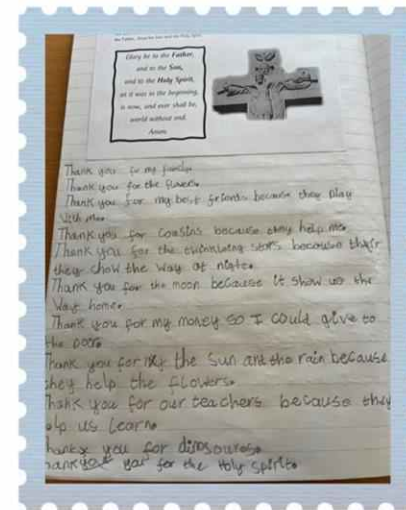 the Father, from the Son and the Holy Spirit.
Glory be to the Father,
and to the Son,
and to the Holy Spirit,
as it was in the beginning,
is now, and ever shall be,
world without end.
Amen.
Thank you for my family.
Thank you for the flowers.
Thank you for my best friends because they play
with me.
Thank you for cousins because they help me.
Thank you for the twinkling stars because their
they chow the way at nite.
Thank you for the moon because it show us the
way home.
Thank you for my money so I could give to
the poor.
Thank you for the Sun and the rain because
they help the flowers.
Thank you for our teachers because they
elp us learn.
hank you for dinosoures.
hank you for the Holy Spirit.